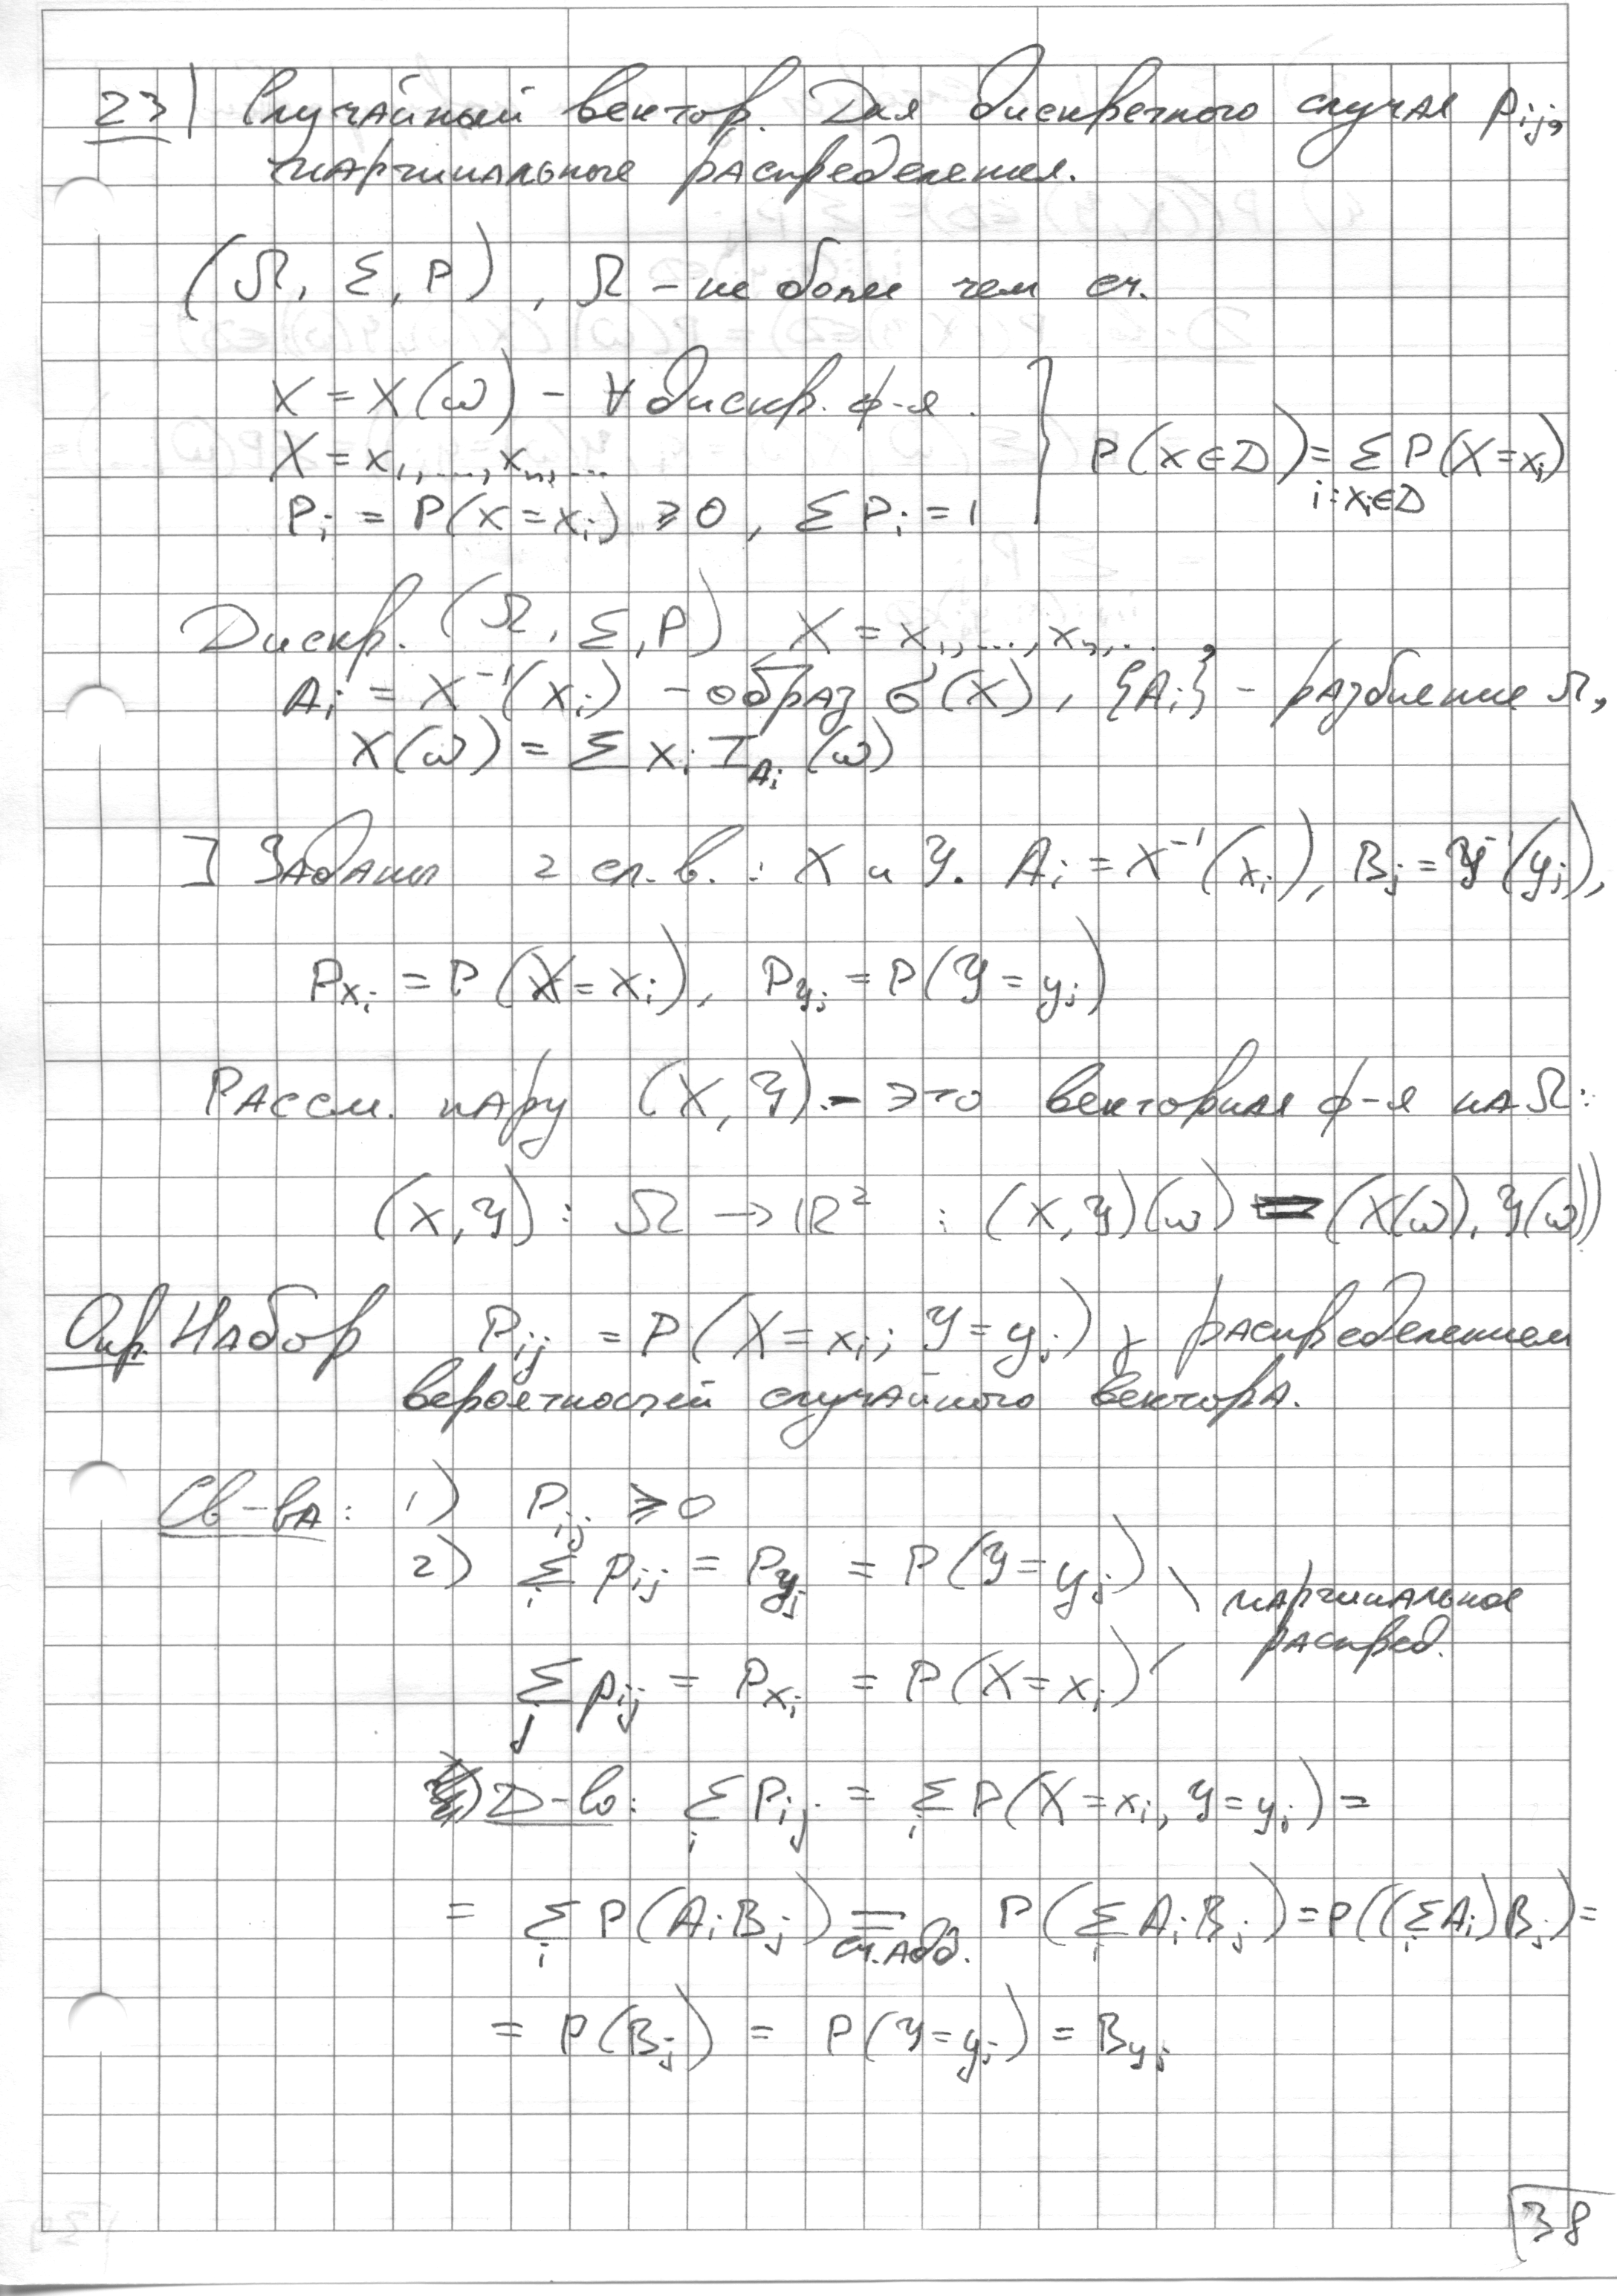 23) Случайный вектор. Для дискретного случая p_ij,
маргинальные распределения.
(Ω, Σ, P), Ω - не более чем сч.
X = X(ω) - ∀ дискр. ф-я.
X = x_1, ..., x_n, ...
P_i = P(X = x_i) ⩾ 0, Σ P_i = 1
P(x ∈ D) = Σ P(X = x_i)
i: x_i ∈ D
Дискр. (Ω, Σ, P) X = x_1, ..., x_n, ...,
A_i = X^{-1}(x_i) - образ σ(X), {A_i} - разбиение Ω,
X(ω) = Σ x_i I_{A_i}(ω)
] Заданы 2 сл. в.: X и Y. A_i = X^{-1}(x_i), B_j = Y^{-1}(y_j),
P_{x_i} = P(X = x_i), P_{y_j} = P(Y = y_j)
Рассм. пару (X, Y) - это векторная ф-я на Ω:
(X, Y): Ω → ℝ² : (X, Y)(ω) = (X(ω), Y(ω))
Опр. Набор P_ij = P(X = x_i; Y = y_j) γ распределением
вероятностей случайного вектора.
Св-ва: 1) P_ij ⩾ 0
2) Σ_i p_ij = P_{y_j} = P(Y = y_j) \ маргинальное
распред.
Σ_j p_ij = P_{x_i} = P(X = x_i) /
Д-во: Σ_i P_ij = Σ_i P(X = x_i, Y = y_j) =
= Σ_i P(A_i B_j) = сч. адд. P(Σ_i A_i B_j) = P((Σ_i A_i) B_j) =
= P(B_j) = P(Y = y_j) = B_{y_j}
38